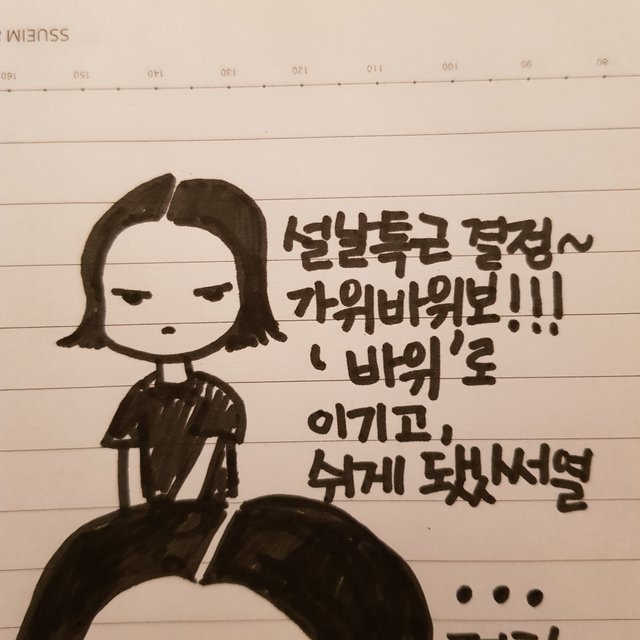 160 150 140 130 120 110 100 90 80
설날특근 결정~
가위바위보!!!
'바위'로
이기고,
쉬게 됐밨써열
...